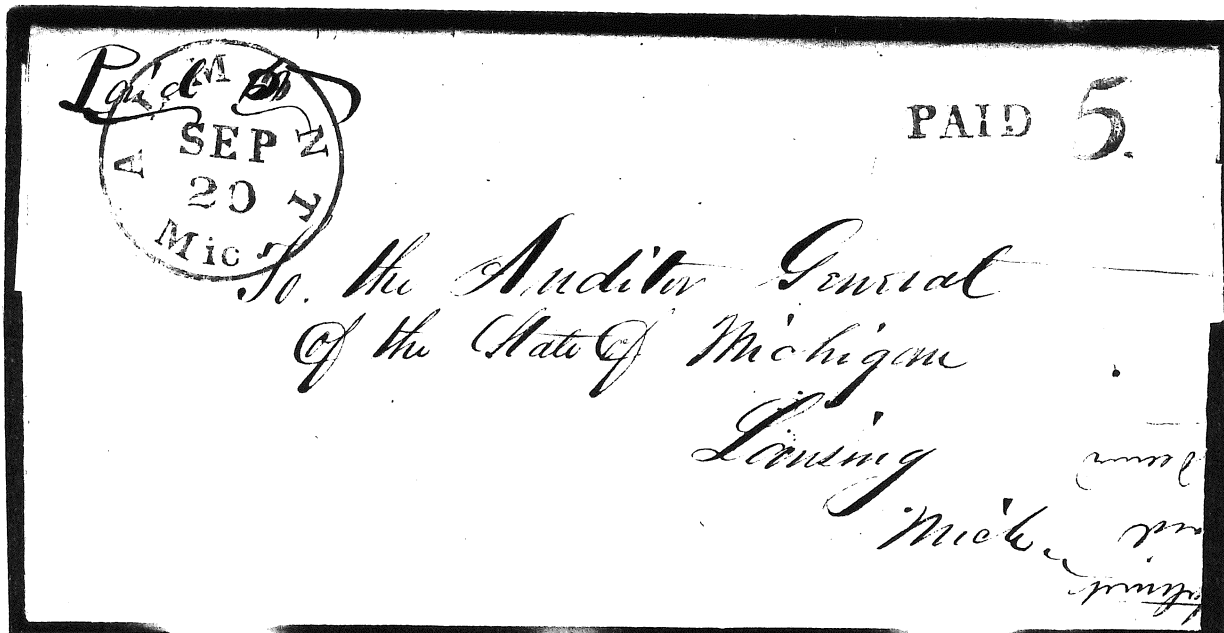 Paid
ALMONT
SEP
20
Mic
PAID 5.
To. the Auditor General
of the State of Michigan
Lansing
Mich.